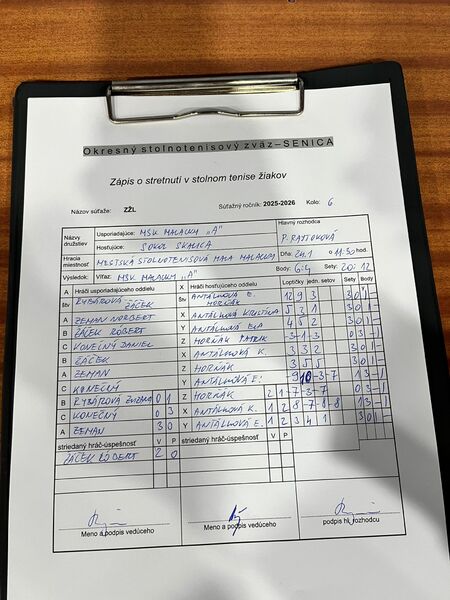 Okresný stolnotenisový zväz–SENICA
Zápis o stretnutí v stolnom tenise žiakov
Názov súťaže: ZŽL Súťažný ročník: 2025-2026 Kolo: 6
Názvy družstiev Usporiadajúce: MSK MALACKY „A" Hlavný rozhodca
Hosťujúce: SOKOL SKALICA P. RAJTOKOVÁ
Hracia miestnosť MESTSKÁ STOLNOTENISOVÁ HALA MALACKY Dňa: 24.1 o 11:30 hod.
Výsledok: Víťaz: MSK MALACKY „A" Body: 6:4 Sety: 20:12
A Hráči usporiadajúceho oddielu X Hráči hosťujúceho oddielu Loptičky jedn. setov Sety Body
štv RYBÁROVÁ ŽÁČEK štv ANTÁLKOVÁ E. HORŇÁK 12 9 3 3 0 1 –
A ZEMAN NORBERT X ANTÁLKOVÁ KRISTÍNA 5 2 1 3 0 1 –
B ŽÁČEK RÓBERT Y ANTÁLKOVÁ ELA 4 5 2 3 0 1 –
C KONEČNÝ DANIEL Z HORŇÁK PATRIK
B ŽÁČEK X ANTÁLKOVÁ K. 3 3 2 3 0 1 –
A ZEMAN Z HORŇÁK 3 5 5 3 0 1 –
C KONEČNÝ Y ANTÁLKOVÁ E.
B RYBÁROVÁ ZUZANA 0 1 Z HORŇÁK 2 1
C KONEČNÝ 0 3 X ANTÁLKOVÁ K. 1 2
A ZEMAN 3 0 Y ANTÁLKOVÁ E. 1 2 3 4 1 3 0 1 –
striedaný hráč-úspešnosť V P striedaný hráč-úspešnosť V P
ŽÁČEK RÓBERT 2 0
Meno a podpis vedúceho Meno a podpis vedúceho podpis hl. rozhodcu